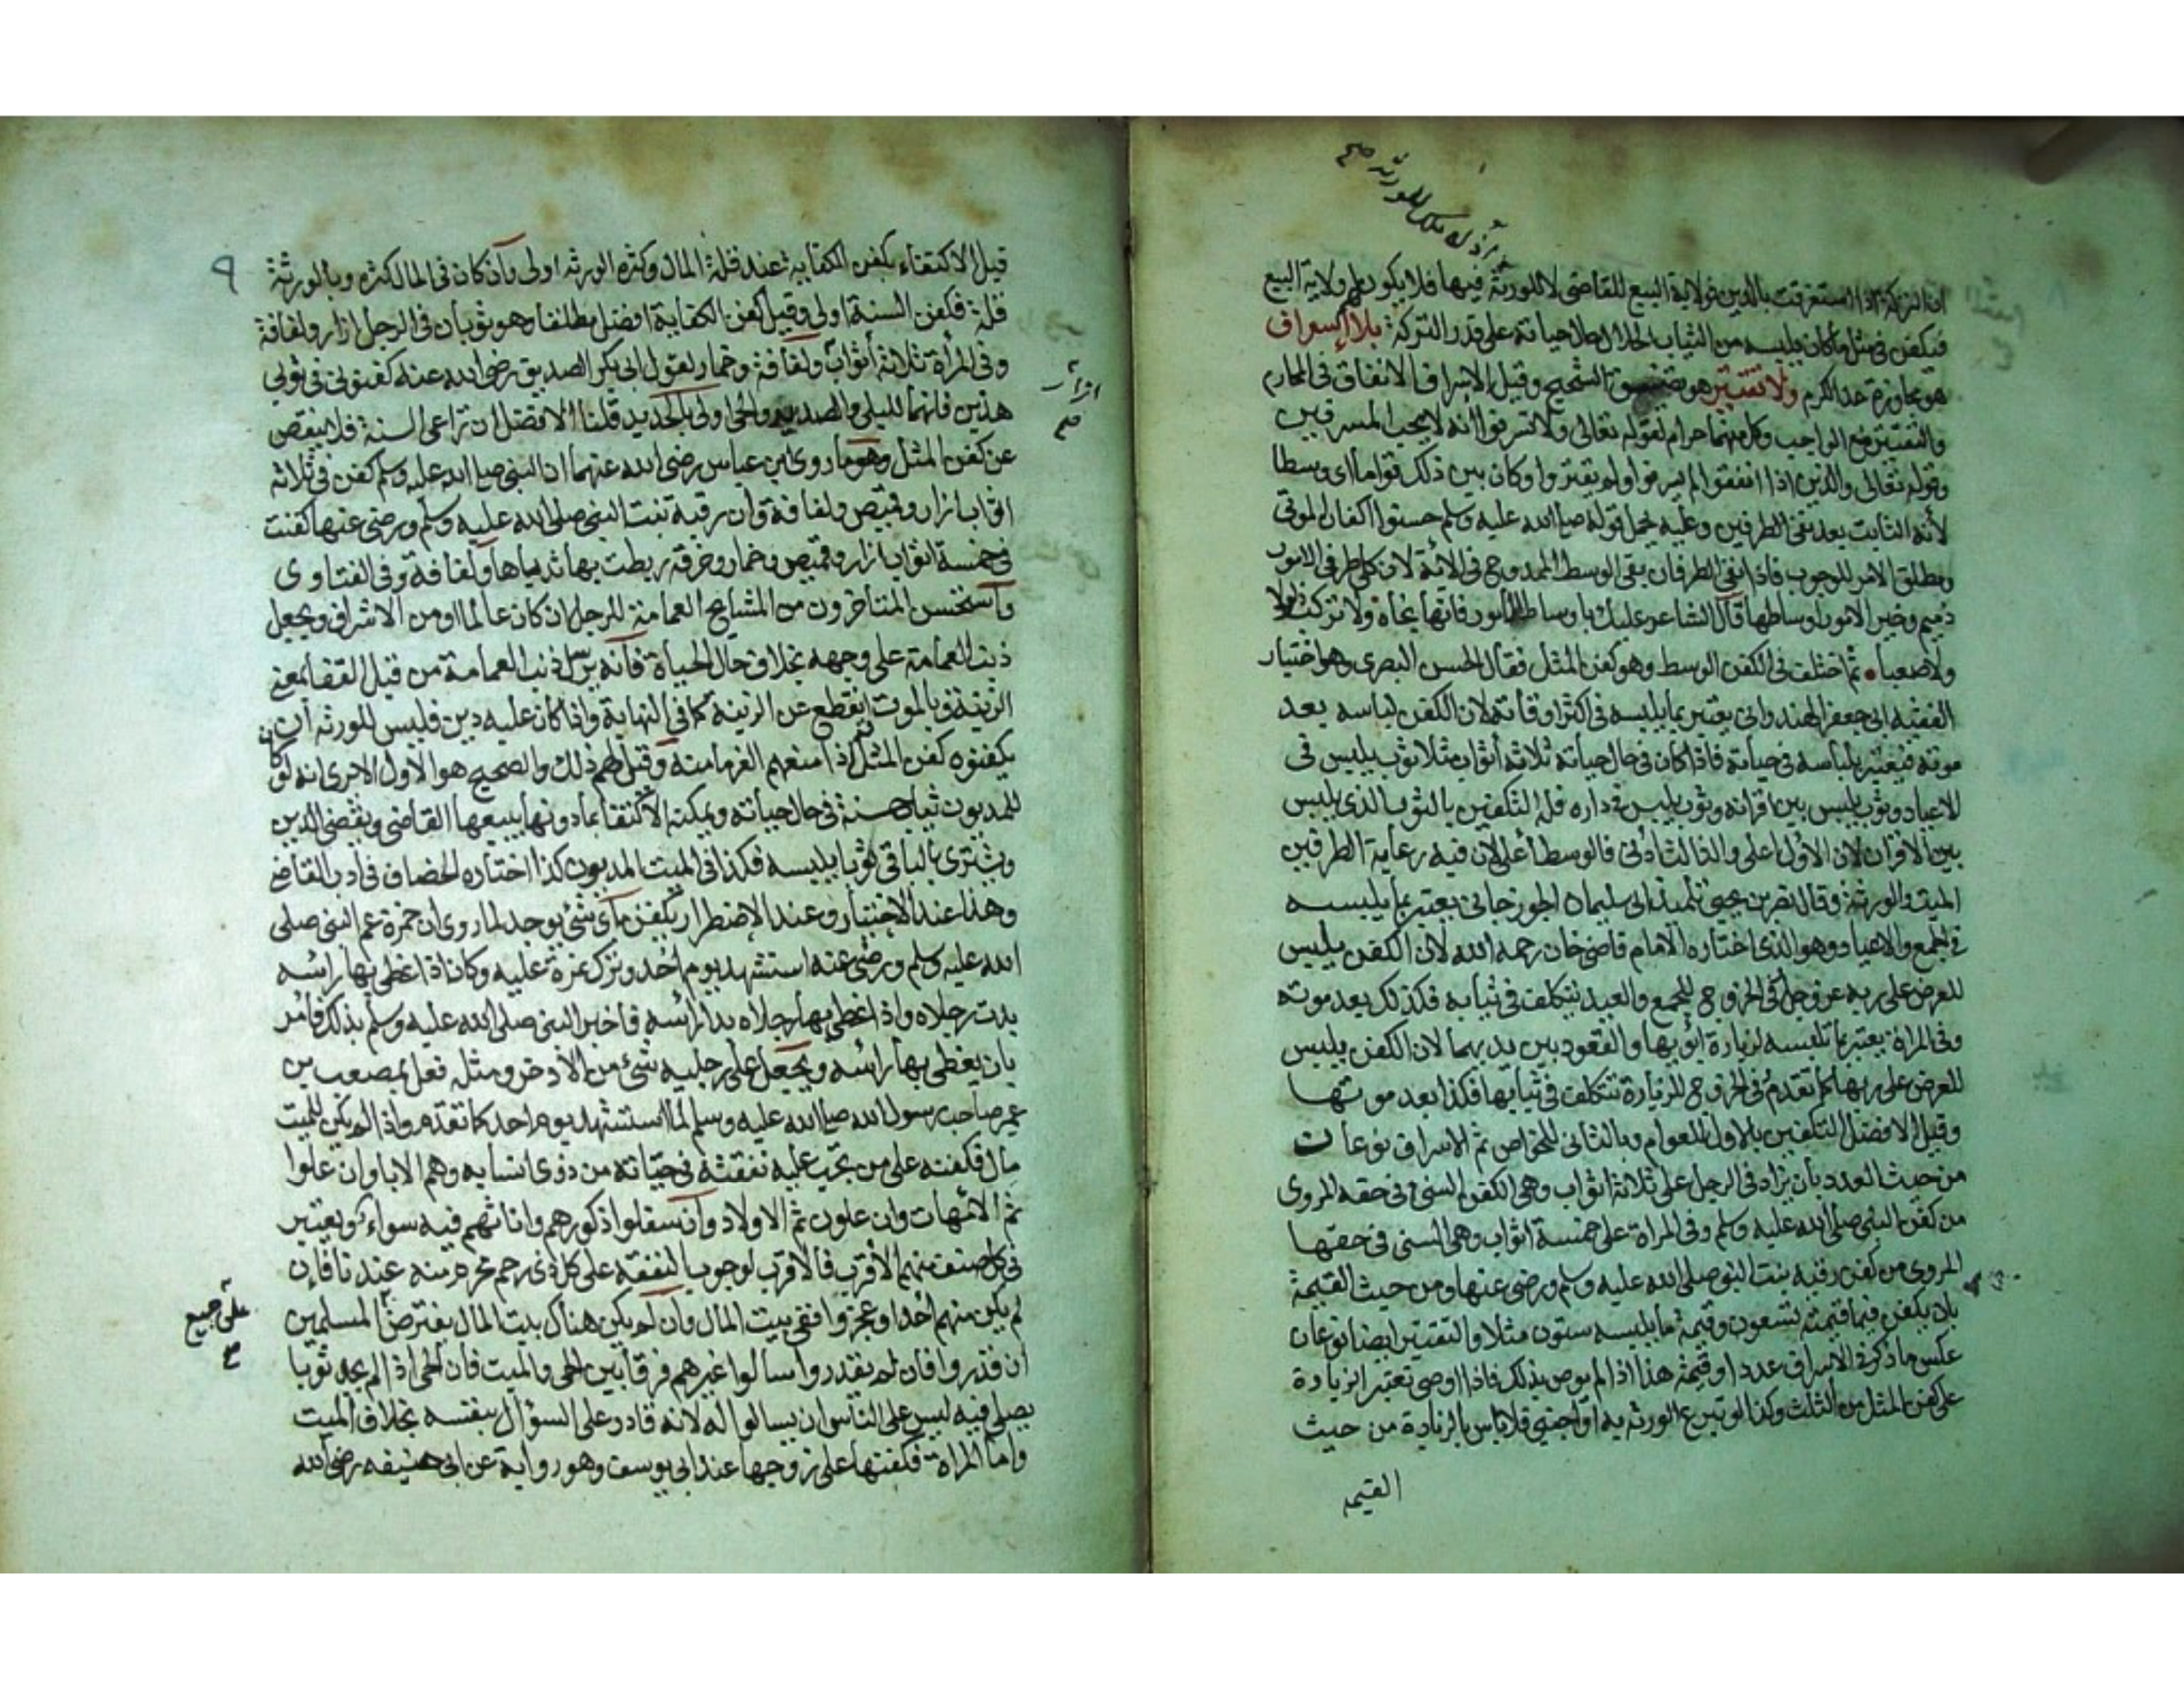 ان التركة اذا استغرقت بالدين فولاية البيع للقاضى لا للورثة فيها فلا يكون لهم ولاية البيع
فيكفن فى مثل ما كان يلبسه من الثياب الحلال حال حياته على قدر التركة بلا اسراف
هو مجاوزة حد الكرم ولا تقتير هو الشحيح وقيل الاسراف الانفاق فى المحارم
والتقتير منع الواجب وكل منهما حرام لقوله تعالى ولا تسرفوا انه لا يحب المسرفين
وقوله تعالى والذين اذا انفقوا لم يسرفوا ولم يقتروا وكان بين ذلك قواما اى وسطا
لأنه الثابت بعد نفى الطرفين وعليه يحمل قوله صلى الله عليه وسلم حسنوا اكفان الموتى
ومطلق الامر للوجوب فاذا نفى الطرفان بقى الوسط الممدوح فى الائة لان كلى طرفى الامور
ذميم وخير الامور اوساطها قال الشاعر عليك باوساط الامور فانها نجاة ولا تركب ذلولا
ولا صعبا ثم اختلف فى الكفن الوسط وهو كفن المثل فقال الحسن البصرى وهو اختيار
الفقيه ابى جعفر الهندوانى يعتبر بما يلبسه فى اكثر اوقاته لان الكفن لباسه بعد
موته فيعتبر بلباسه فى حياته فاذا كان فى حال حياته ثلاثة أثواب مثلا ثوب يلبس فى
الاعياد وثوب يلبس بين اقرانه وثوب يلبس فى داره فله التكفين بالثوب الذى يلبس
بين الاقران لان الاول اعلى والثالث ادنى فالوسط أعلى لان فيه رعاية الطرفين
الميت والورثة وقال نصر بن يحيى تلميذ ابى سليمان الجوزجانى يعتبر بما يلبسه
فى الجمع والاعياد وهو الذى اختاره الامام قاضى خان رحمه الله لان الكفن يلبس
للعرض على ربه عز وجل كفى الخروج للجمع والعيد يتكلف فى ثيابه فكذلك بعد موته
وفى المراة يعتبر بما تلبسه لزيارة ابويها والقعود بين يديهما لان الكفن يلبس
للعرض على ربها كما تقدم فى الخروج للزيارة تتكلف فى ثيابها فكذا بعد موتها
وقيل الافضل التكفين بالاول للعوام وبالثانى للخواص ثم الاسراف نوعان
من حيث العدد بان يزاد فى الرجل على ثلاثة اثواب وهى الكفن السنى فى حقه المروى
من كفن النبى صلى الله عليه وسلم وفى المراة على خمسة اثواب وهى السنى فى حقها
المروى من كفن رقية بنت النبى صلى الله عليه وسلم ورضى عنها ومن حيث القيمة
بان يكفن فيما قيمته تسعون وقيمة ما يلبسه ستون مثلا والتقتير ايضا نوعان
عكس ما ذكر فى الاسراف عددا وقيمة هذا اذا لم يوص بذلك فاذا اوصى تعتبر الزيادة
على كفن المثل من الثلث وكذا لو تبرع الورثة به او اجنبى فلا باس بالزيادة من حيث
القيمه
٩
قيل الاكتفاء بكفن الكفاية عند قلة المال وكثرة الورثه اولى وان كان فى المال كثره وبالورثة
قلة فكفن السنة اولى وقيل كفن الكفاية افضل مطلقا وهو ثوبان فى الرجل ازار ولفافة
وفى المرأة ثلاثة أثواب ولفافة وخمار لقول ابى بكر الصديق رضى الله عنه كفنونى فى ثوبى
هذين فانهما للبلى والصديد والحى اولى بالجديد قلنا الافضل ان تراعى السنة فلا ينقص
عن كفن المثل وهو ما روى ابن عباس رضى الله عنهما ان النبى صلى الله عليه وسلم كفن فى ثلاثه
اثواب ازار وقميص ولفافة وان رقية بنت النبى صلى الله عليه وسلم ورضى عنها كفنت
فى خمسة اثواب ازار وقميص وخمار وخرقة ربطت بها ثدياها ولفافة وفى الفتاوى
واستحسن المتاخرون من المشايخ العمامة للرجل ان كان عالما او من الاشراف ويجعل
ذنب العمامة على وجهه بخلاف حال الحياة فانه يرسل ذنب العمامة من قبل القفا لمعنى
الزينة وبالموت انقطع عن الزينة كما فى النهاية واذا كان عليه دين فليس للورثه ان
يكفنوه كفن المثل اذا منعهم الغرما منه وقيل لهم ذلك والصحيح هو الاول الا يرى انه لو كان
للمديون ثياب حسنة فى حال حياته ويمكنه الاكتفا بما دونها يبيعها القاضى ويقضى الدين
ويشترى بالباقى ثوبا يلبسه فكذا فى الميت المديون كذا اختاره الخصاف فى ادب القاضى
وهذا عند الاختيار وعند الاضطرار يكفن باى شئ يوجد لما روى ان حمزة عم النبى صلى
الله عليه وسلم ورضى عنه استشهد يوم احد وترك نمرة عليه وكان اذا غطى بها رائسه
بدت رجلاه واذا غطى بها رجلاه بدا رائسه فاخبر النبى صلى الله عليه وسلم بذلك فامر
بان يغطى بها رائسه ويجعل على رجليه شئ من الاذخر ومثله فعل بمصعب بن
عمير صاحب رسول الله صلى الله عليه وسلم لما استشهد يوم احد كما تقدم واذا لم يكن للميت
مال فكفنه على من تجب عليه نفقته فى حياته من ذوى انسابه وهم الابا وان علوا
ثم الامهات وان علون ثم الاولاد وان سفلوا ذكورهم واناثهم فيه سواء ويعتبر
فى كل صنف منهم الأقرب فالأقرب لوجوب النفقه على كل ذى رحم محرم منه عندنا فان
لم يكن منهم احد او عجزوا ففى بيت المال وان لم يكن هناك بيت المال يفترض المسلمين
على جميع
ان قدروا فان لم يقدروا سالوا غيرهم فرقا بين الحى والميت فان الحى اذا لم يجد ثوبا
يصلى فيه ليس على الناس ان يسالوا له لانه قادر على السؤال بنفسه بخلاف الميت
واما المراة فكفنها على زوجها عند ابى يوسف وهو رواية عن ابى حنيفه رضى الله